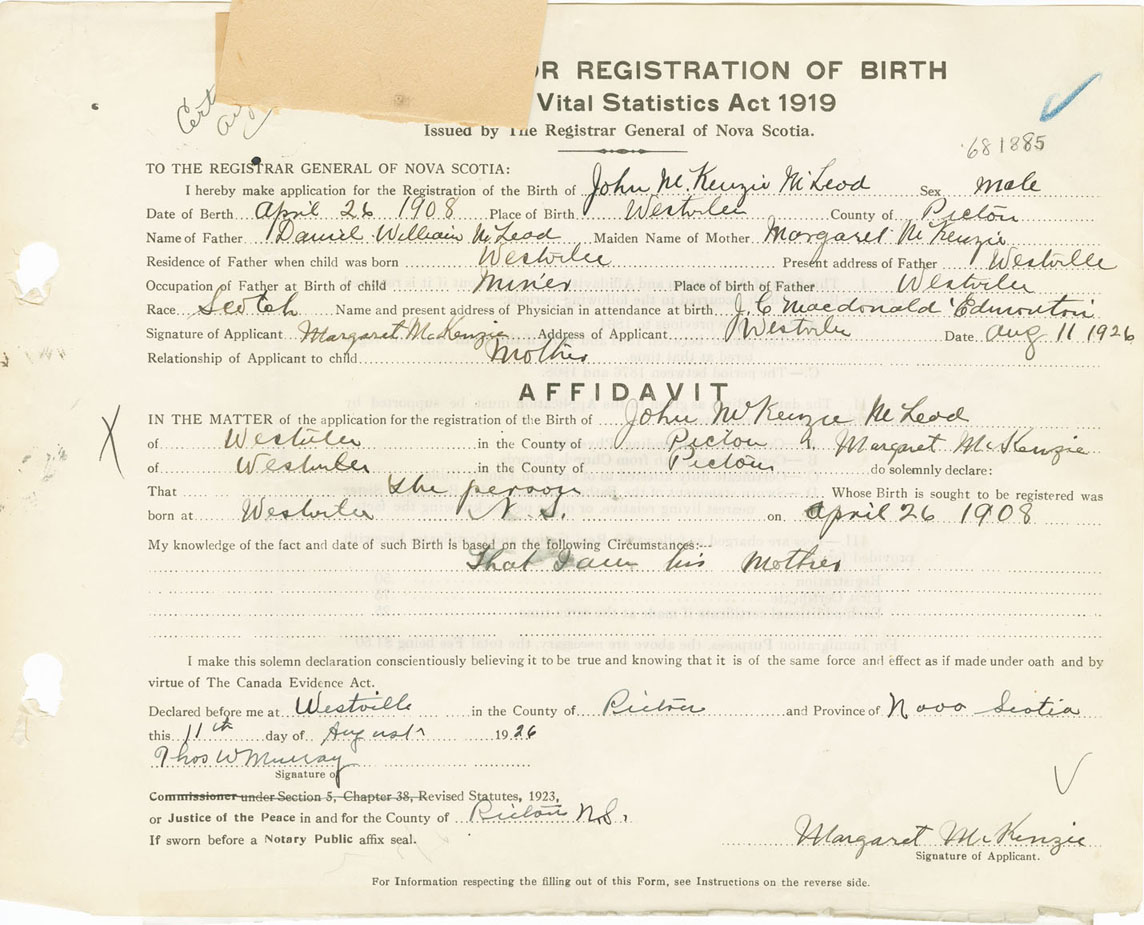 Cert
Aug
OR REGISTRATION OF BIRTH
Vital Statistics Act 1919
Issued by The Registrar General of Nova Scotia.
681885
TO THE REGISTRAR GENERAL OF NOVA SCOTIA:
I hereby make application for the Registration of the Birth of John McKenzie McLeod Sex male
Date of Berth April 26 1908 Place of Birth Westville County of Pictou
Name of Father Daniel William McLeod Maiden Name of Mother Margaret McKenzie
Residence of Father when child was born Westville Present address of Father Westville
Occupation of Father at Birth of child Miner Place of birth of Father Westville
Race Scotch Name and present address of Physician in attendance at birth J. C Macdonald Edmonton
Signature of Applicant Margaret McKenzie Address of Applicant Westville Date Aug 11 1926
Relationship of Applicant to child Mother
AFFIDAVIT
IN THE MATTER of the application for the registration of the Birth of John McKenzie McLeod
of Westville in the County of Pictou I, Margaret McKenzie
of Westville in the County of Pictou do solemnly declare:
That the person Whose Birth is sought to be registered was
born at Westville N.S. on April 26 1908
My knowledge of the fact and date of such Birth is based on the following Circumstances:--
That I am his Mother
I make this solemn declaration conscientiously believing it to be true and knowing that it is of the same force and effect as if made under oath and by
virtue of The Canada Evidence Act.
Declared before me at Westville in the County of Pictou and Province of Nova Scotia
this 11th day of August 1926
Thos W Murray
Signature of
Commissioner under Section 5, Chapter 38, Revised Statutes, 1923,
or Justice of the Peace in and for the County of Pictou N.S.
If sworn before a Notary Public affix seal.
Margaret McKenzie
Signature of Applicant.
For Information respecting the filling out of this Form, see Instructions on the reverse side.